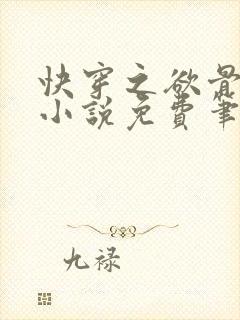 快穿之欲骨
小說免費筆
九禄